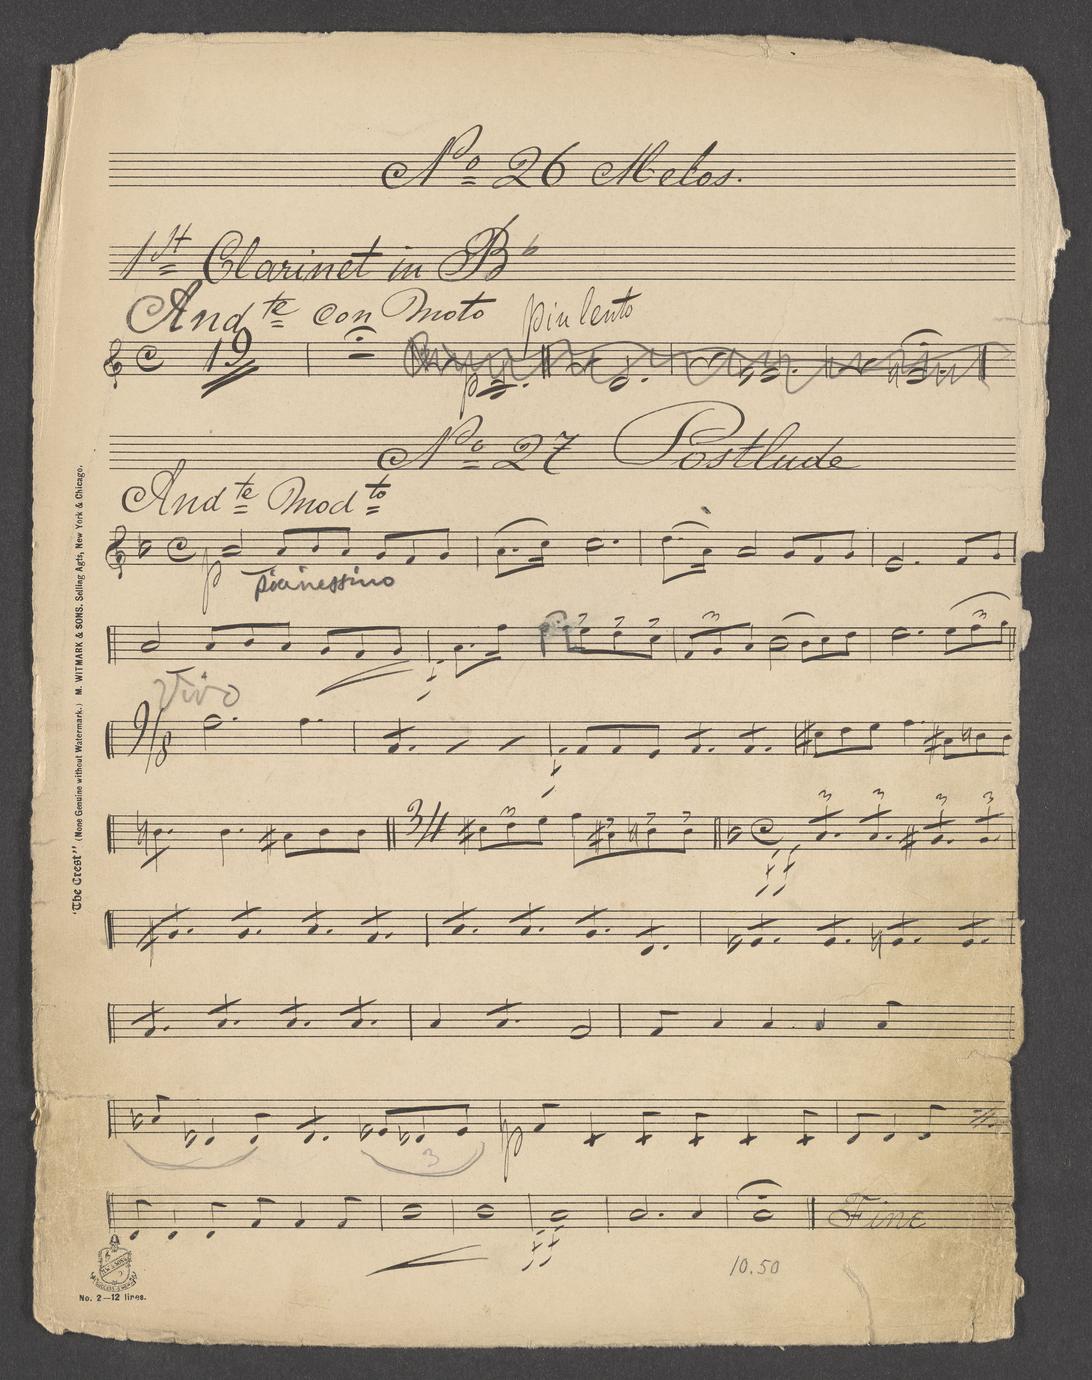 No 26 Melos.
1st Clarinet in B♭
Andte con Moto
piu lento
C 19
p
No 27 Postlude
Andte Modto
C
p
pianessimo
3 3 3 3
f
3
Vivo
9/8
f
3/4 3 3 3 3
C 3 3 3 3
ff
3
p
Fine
ff
10.50
"The Crest" (None Genuine without Watermark.) M. WITMARK & SONS. Selling Agts, New York & Chicago.
No. 2—12 lines.